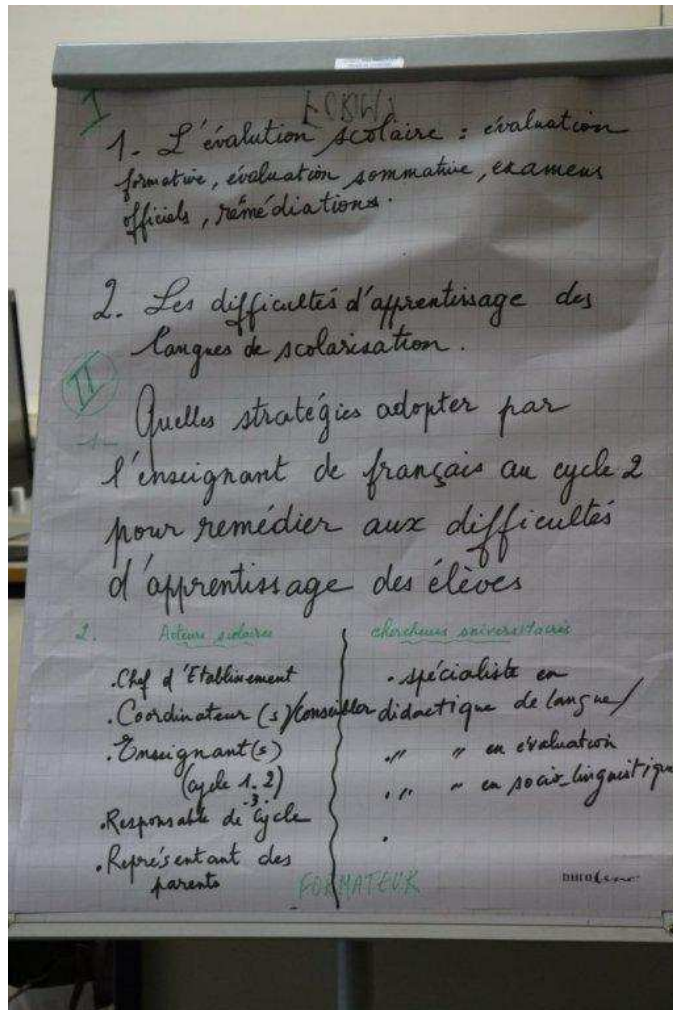 I
1. L'évalution scolaire : évaluation
formative, évaluation sommative, examens
officiels, remédiations.
2. Les difficultés d'apprentissage des
langues de scolarisation.
II
Quelles stratégies adopter par
-1-
l'enseignant de français au cycle 2
pour remédier aux difficultés
d'apprentissage des élèves
2. Acteurs scolaires
.Chef d'Etablissement
.Coordinateur (s)/Conseiller
.Enseignant(s)
(cycle 1. 2)
-3
.Responsable de Cycle
.Représentant des
parents
chercheurs universitaires
. spécialiste en
didactique de langue/
.,, " en évaluation
.,, " en socio-linguistique
.
FORMATEUR